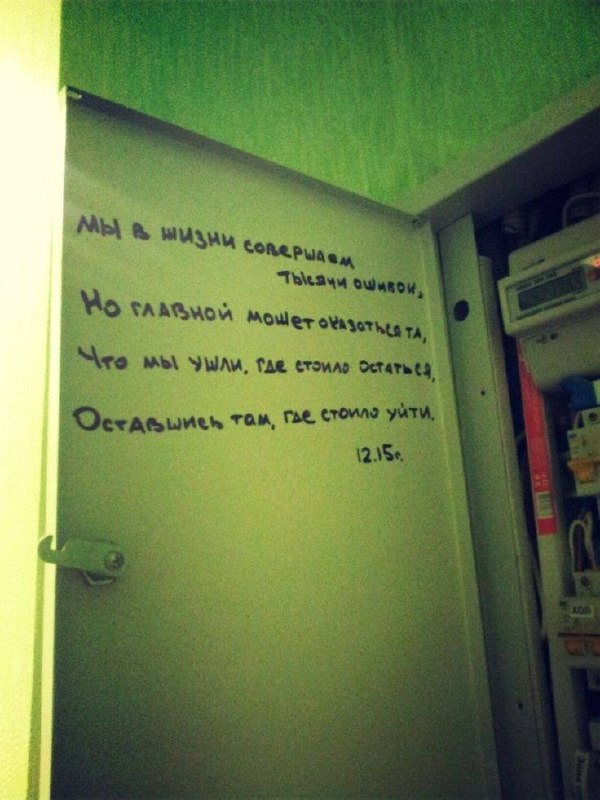 Мы в жизни совершаем
тысячи ошибок,
Но главной может оказаться та,
Что мы ушли, где стоило остаться,
Оставшись там, где стоило уйти.
12.15г.